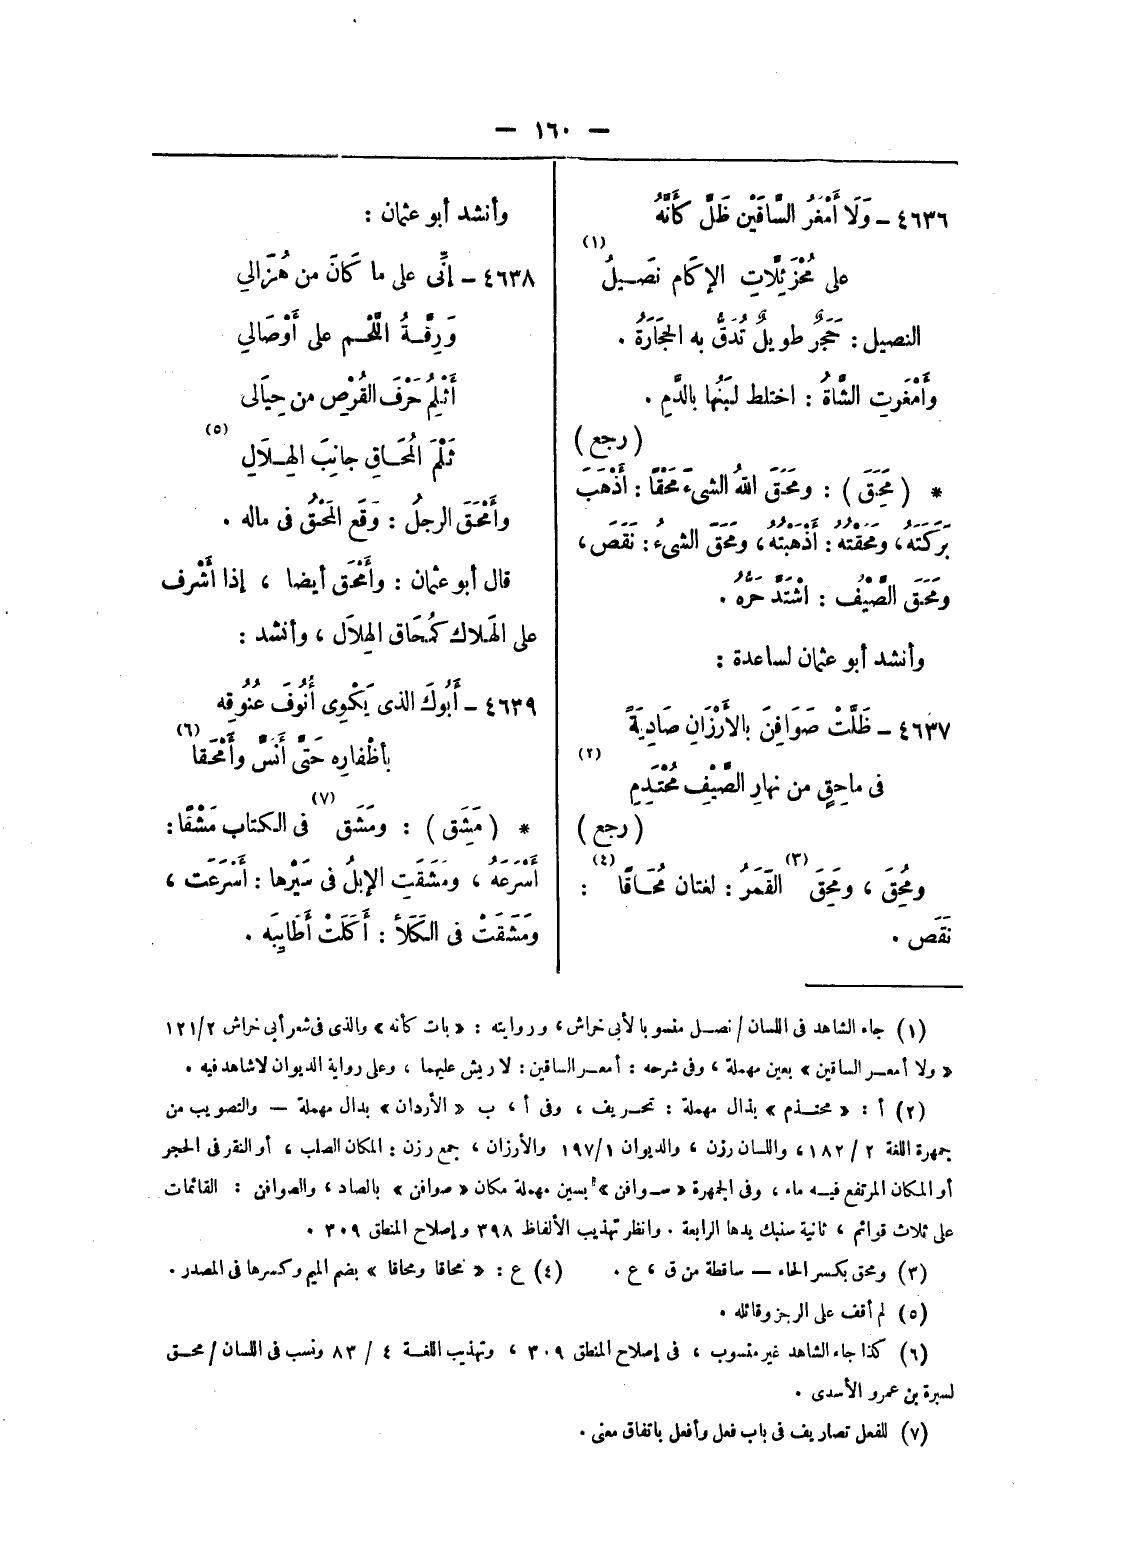 — ١٦٠ —
٤٦٣٦ – وَلَا أَمْغَرُ السَّاقَيْنِ ظَلَّ كَأَنَّهُ
على مُحْزَئِلَّاتِ الإكَامِ نَصِيلُ (١)
النصيل : حَجَرٌ طويلٌ تُدَقُّ به الحِجَارَةُ .
وأَمْغَرتِ الشَّاةُ : اختلط لَبَنُها بالدَّمِ .
( رجع )
* ( مَحَقَ ) : ومَحَقَ اللهُ الشىءَ مَحْقًا : أَذْهَبَ
بَرَكَتَهُ ، ومَحَقْتُهُ : أَذهَبْتُهُ ، ومَحَقَ الشىءُ : نَقَصَ ،
ومَحَقَ الصَّيْفُ : اشْتَدَّ حَرُّهُ .
وأنشد أبو عثمان لساعدة :
٤٦٣٧ – ظَلَّتْ صَوَافِنَ بالأَرْزَانِ صَادِيَةً
فى ماحِقٍ من نهارِ الصَّيْفِ مُحْتَدِمِ (٢)
( رجع )
ومُحِقَ ، ومَحِقَ (٣) القَمَرُ : لغتان مُحَاقًا (٤) :
نَقَصَ .
وأنشد أبو عثمان :
٤٦٣٨ – إنِّى على ما كَانَ من هُزَالي
وَرِقَّةُ اللَّحْمِ على أَوْصَالي
أَثْلِمُ حَرْفَ القُرْصِ من حِيَالى
ثَلْمَ المُحَاقِ جانِبَ الهِلَالِ (٥)
وأَمْحَقَ الرجلُ : وَقَع المَحْقُ فى ماله .
قال أبو عثمان : وأَمْحَق أيضا ، إذا أَشْرف
على الهَلاك كَمُحَاق الهِلَال ، وأنشد :
٤٦٣٩ – أَبُوكَ الذى يَكْوِى أُنُوفَ عُنُوقِه
بأظْفارِه حَتَّى أَنَسَّ وأَمْحَقا (٦)
* ( مَشَق ) : ومَشَق (٧) فى الكتاب مَشْقًا :
أَسْرَعَهُ ، ومَشَقَتِ الإبلُ فى سَيْرِها : أَسْرَعَت ،
ومَشَقَتْ فى الكَلَأ : أَكَلَتْ أَطَايِبَه .
(١) جاء الشاهد فى اللسان / نصل منسوبا لأبى خراش ، وروايته : « بات كأنه » والذى فى شعر أبى خراش ١٢١/٢
« ولا أمعر الساقين » بعين مهملة ، وفى شرحه : أمعر الساقين : لا ريش عليهما ، وعلى رواية الديوان لا شاهد فيه .
(٢) أ : « محتذم » بذال مهملة : تحريف ، وفى أ ، ب « الأردان » بدال مهملة – والتصويب من
جمهرة اللغة ٢ / ١٨٢ ، واللسان رزن ، والديوان ١٩٧/١ والأرزان ، جمع رزن : المكان الصلب ، أو النقر فى الحجر
أو المكان المرتفع فيه ماء ، وفى الجمهرة « سوافن » بسين مهملة مكان « صوافن » بالصاد ، والصوافن : القائمات
على ثلاث قوائم ، ثانية سنبك يدها الرابعة . وانظر تهذيب الألفاظ ٣٩٨ وإصلاح المنطق ٣٠٩ .
(٣) ومحق بكسر الحاء – ساقطة من ق ، ع . (٤) ع : « محاقا ومحاقا » بضم الميم وكسرها فى المصدر .
(٥) لم أقف على الرجز وقائله .
(٦) كذا جاء الشاهد غير منسوب ، فى إصلاح المنطق ٣٠٩ ، وتهذيب اللغة ٤ / ٨٣ ونسب فى اللسان / محق
لسبرة بن عمرو الأسدى .
(٧) للفعل تصاريف فى باب فعل وأفعل باتفاق معنى .